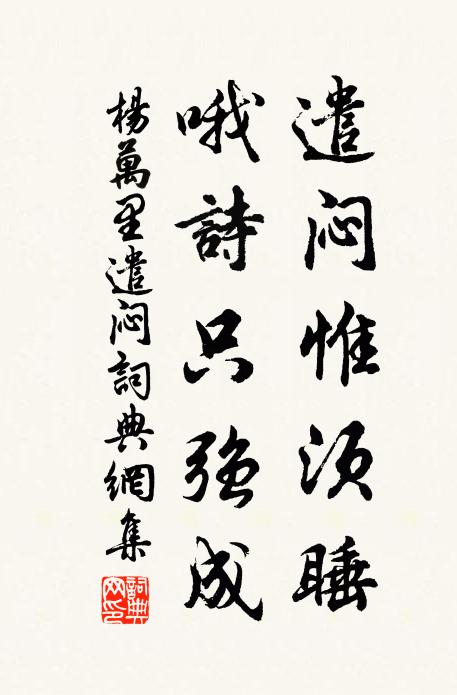 遣闷惟须睡
哦詩只強成
楊萬里遣闷詞典網集
詞典网印